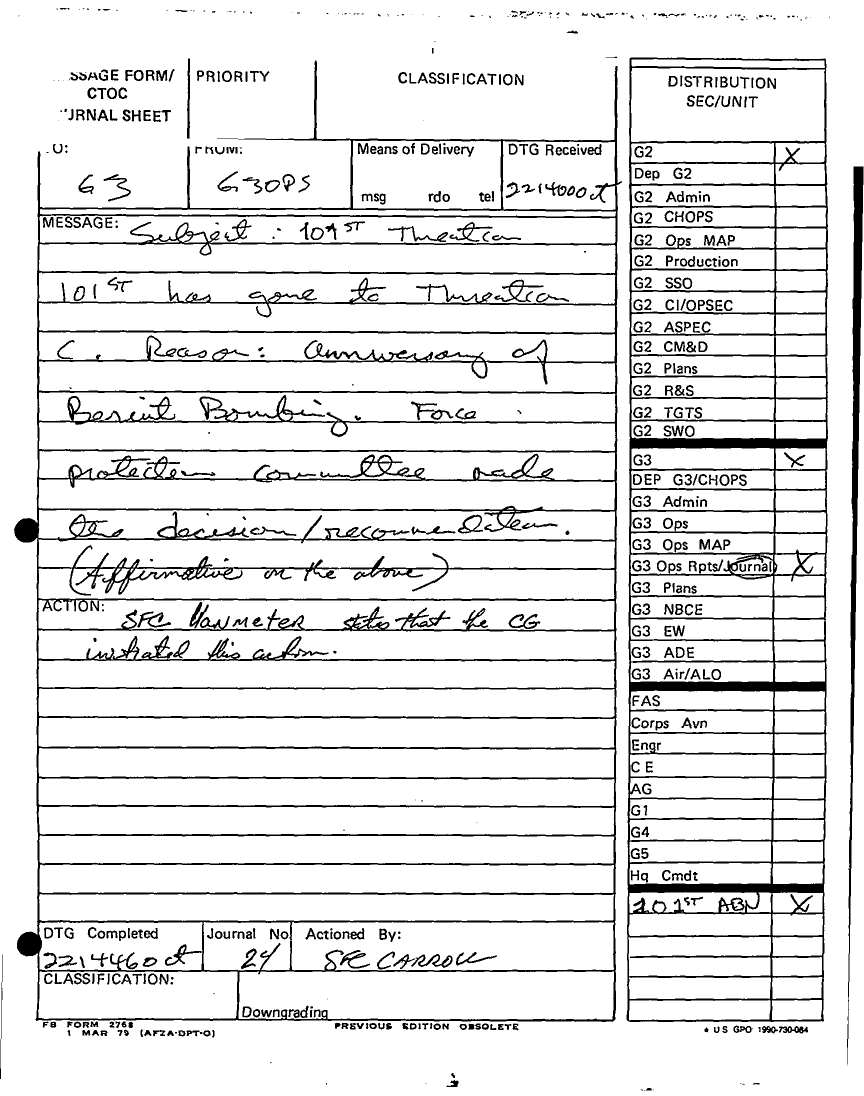 SSAGE FORM/
CTOC
JRNAL SHEET
PRIORITY
CLASSIFICATION
O:
G3
FROM:
G3OPS
Means of Delivery
msg rdo tel
DTG Received
221400Oct
MESSAGE: Subject: 101ST Threatcon
101ST has gone to Threatcon
C. Reason: Anniversary of
Beriut Bombing. Force
protection committee made
the decision/recommendation.
(Affirmative on the above)
ACTION: SFC VanMeter states that the CG
initiated this action.
DTG Completed
Journal No
24
Actioned By:
SFC CARROLL
CLASSIFICATION:
Downgrading
FB FORM 2768
1 MAR 79 (AFZA-DPT-O)
PREVIOUS EDITION OBSOLETE
DISTRIBUTION
SEC/UNIT
G2 X
Dep G2
G2 Admin
G2 CHOPS
G2 Ops MAP
G2 Production
G2 SSO
G2 CI/OPSEC
G2 ASPEC
G2 CM&D
G2 Plans
G2 R&S
G2 TGTS
G2 SWO
G3 X
DEP G3/CHOPS
G3 Admin
G3 Ops
G3 Ops MAP
G3 Ops Rpts/Journal X
G3 Plans
G3 NBCE
G3 EW
G3 ADE
G3 Air/ALO
FAS
Corps Avn
Engr
C E
AG
G1
G4
G5
Hq Cmdt
101ST ABN X
* US GPO 1990-730-084